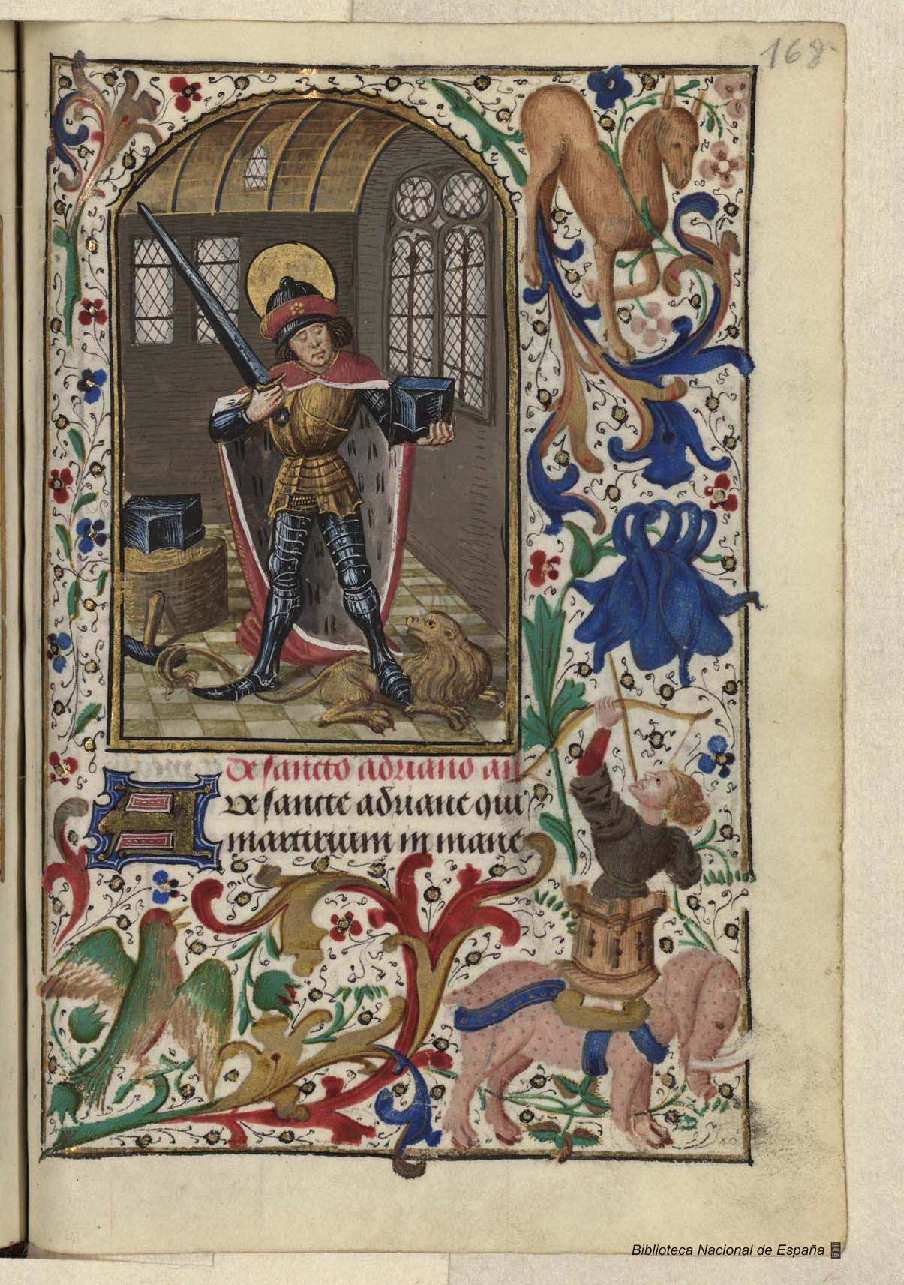 168
De sancto adriano an
Be sancte adriane qui
martirium in mane
Biblioteca Nacional de España